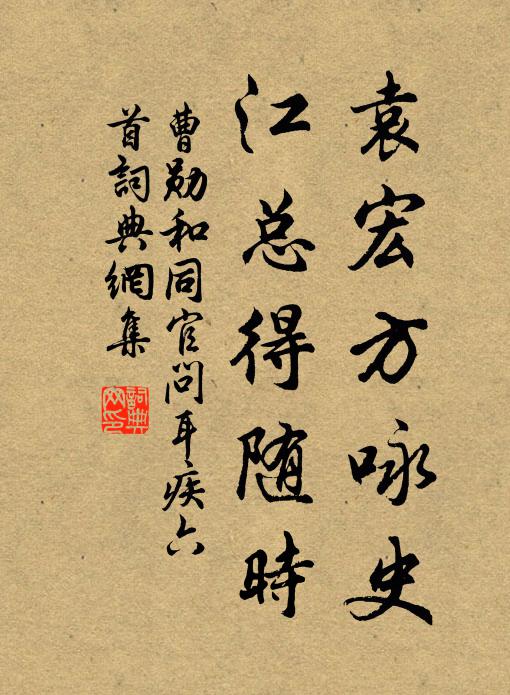 袁宏方咏史
江总得随時
曹勋和同官问耳疾六
首詞典網集
詞典
网印